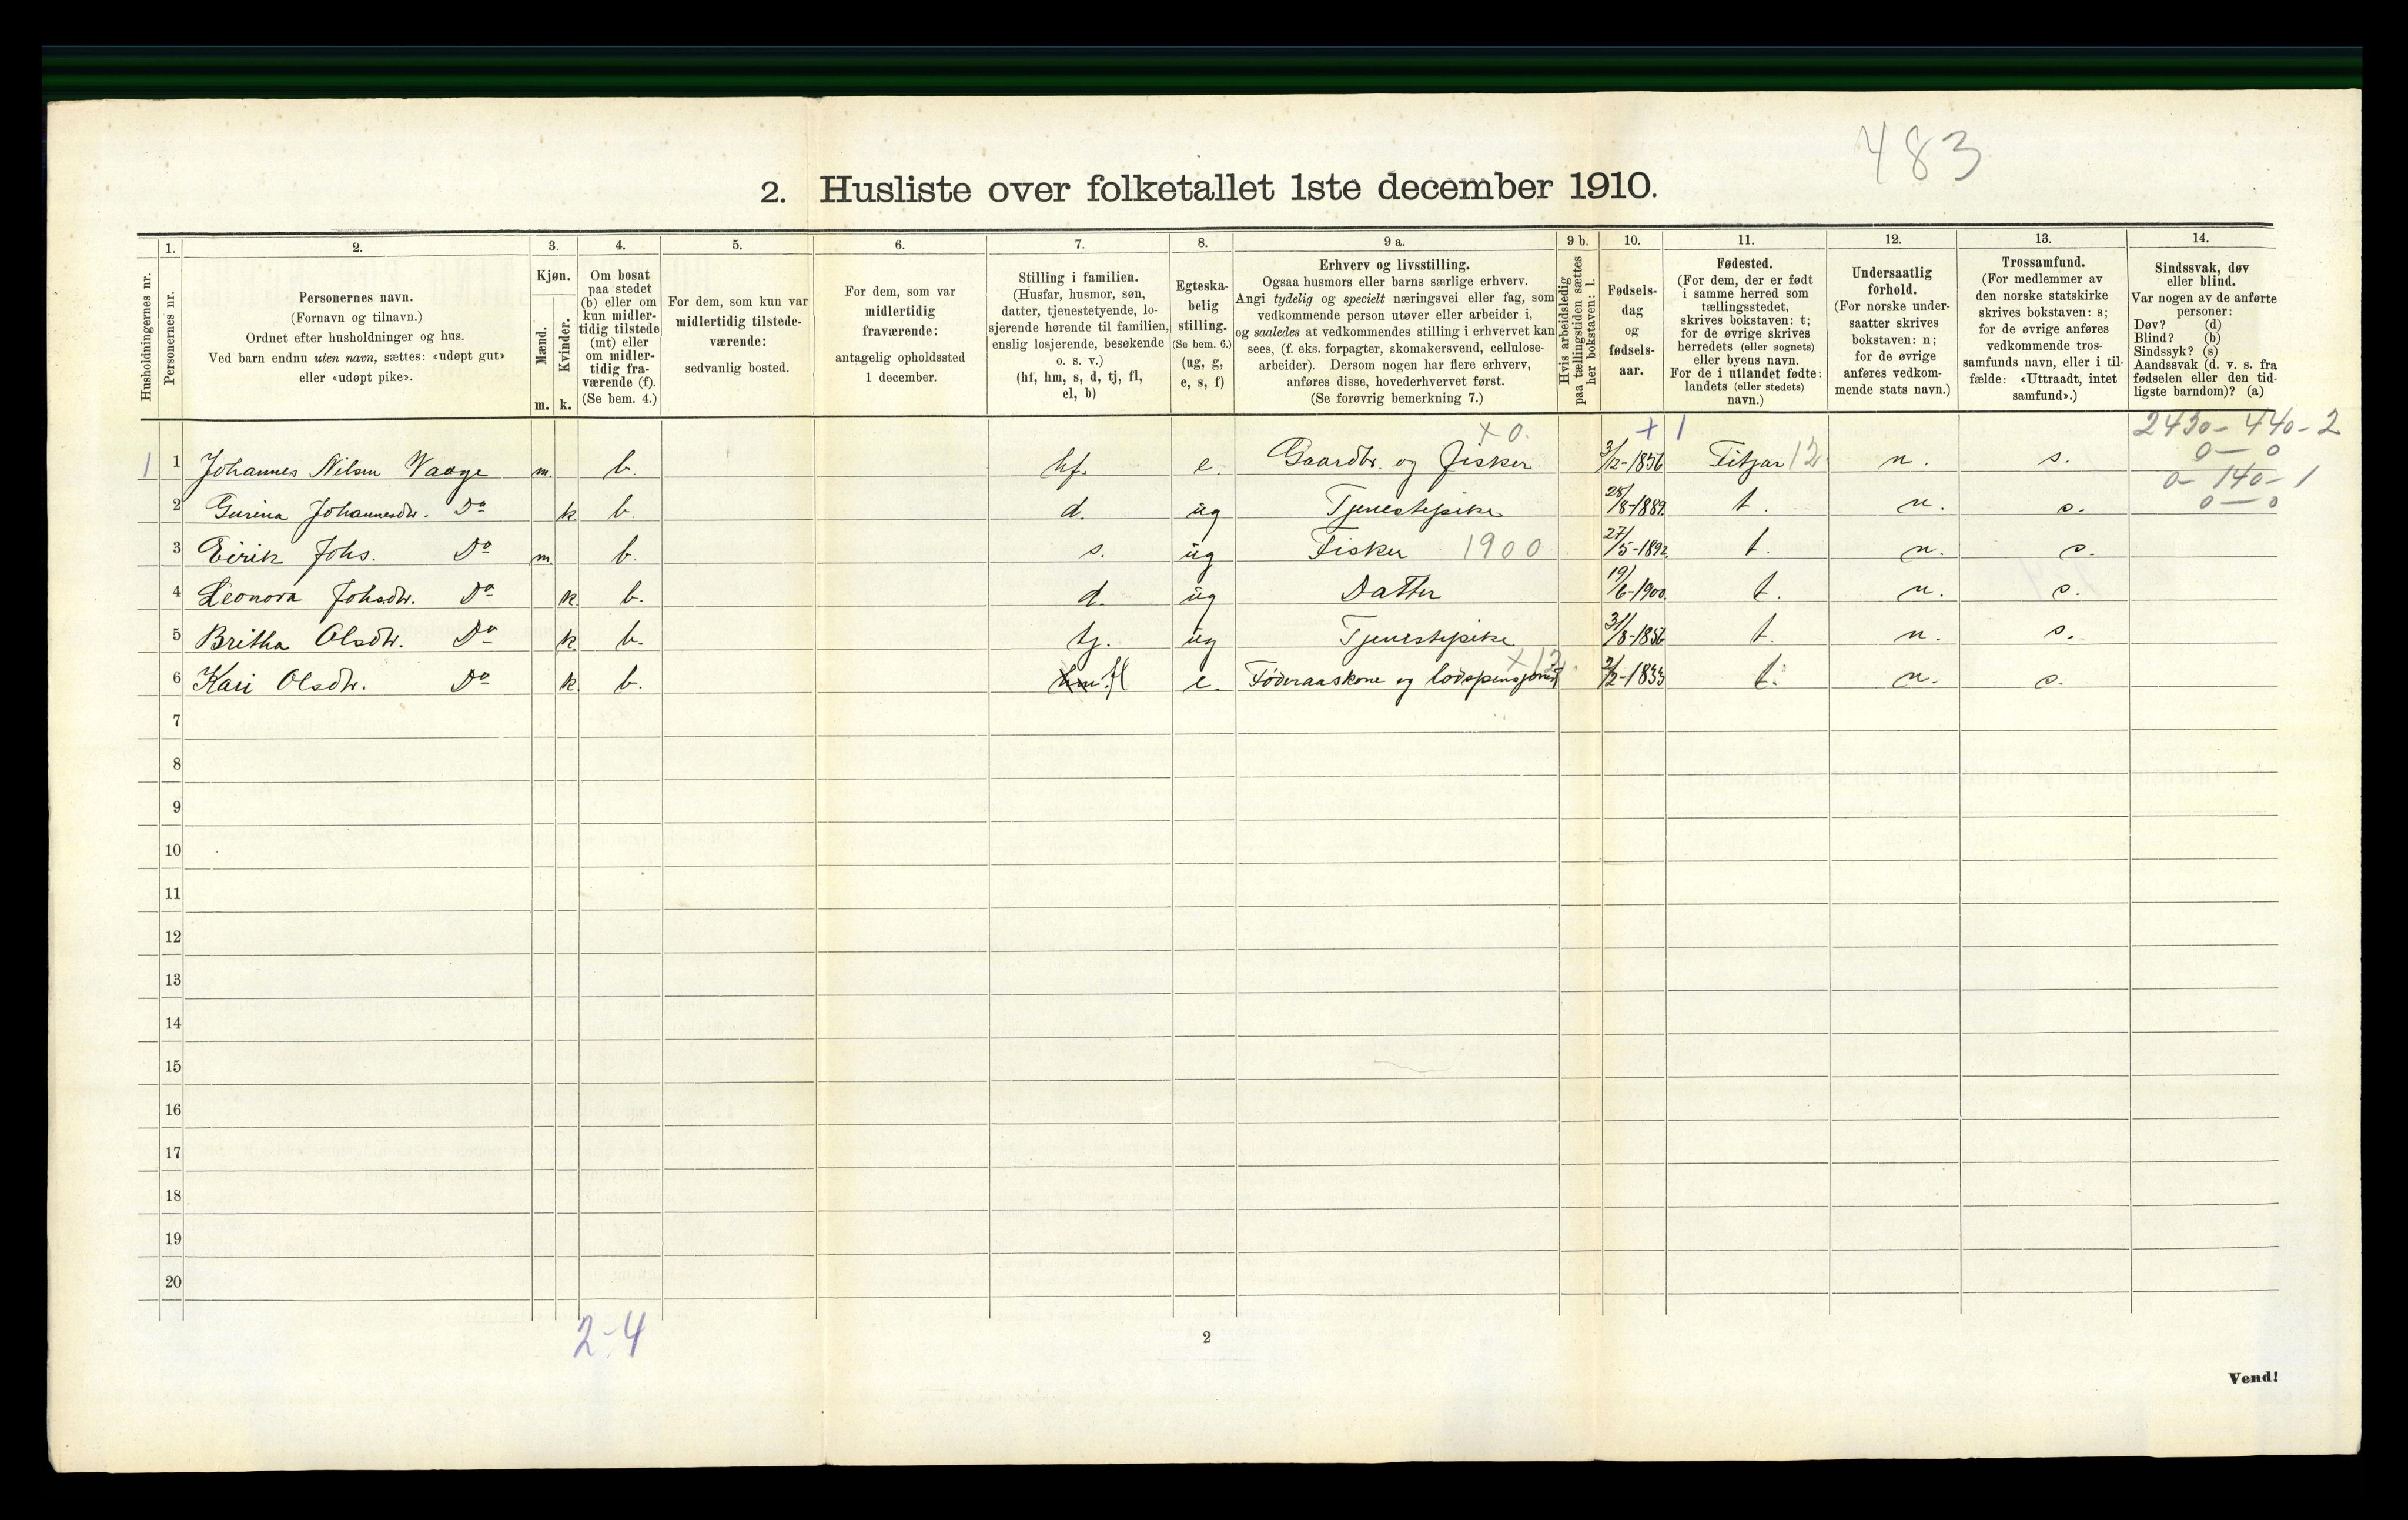 483
2. Husliste over folketallet 1ste december 1910.
Husholdningernes nr.
1.
Personernes nr.
2.
Personernes navn.
(Fornavn og tilnavn.)
Ordnet efter husholdninger og hus.
Ved barn endnu uten navn, sættes: «udøpt gut»
eller «udøpt pike».
3.
Kjøn.
Mænd.
Kvinder.
m. k.
4.
Om bosat
paa stedet
(b) eller om
kun midler-
tidig tilstede
(mt) eller
om midler-
tidig fra-
værende (f).
(Se bem. 4.)
5.
For dem, som kun var
midlertidig tilstede-
værende:
sedvanlig bosted.
6.
For dem, som var
midlertidig
fraværende:
antagelig opholdssted
1 december.
7.
Stilling i familien.
(Husfar, husmor, søn,
datter, tjenestetyende, lo-
sjerende hørende til familien,
enslig losjerende, besøkende
o. s. v.)
(hf, hm, s, d, tj, fl,
el, b)
8.
Egteska-
belig
stilling.
(Se bem. 6.)
(ug, g,
e, s, f)
9 a.
Erhverv og livsstilling.
Ogsaa husmors eller barns særlige erhverv.
Angi tydelig og specielt næringsvei eller fag, som
vedkommende person utøver eller arbeider i,
og saaledes at vedkommendes stilling i erhvervet kan
sees, (f. eks. forpagter, skomakersvend, cellulose-
arbeider). Dersom nogen har flere erhverv,
anføres disse, hovederhvervet først.
(Se forøvrig bemerkning 7.)
9 b.
Hvis arbeidsledig
paa tællingstiden sættes
her bokstaven: l.
10.
Fødsels-
dag
og
fødsels-
aar.
11.
Fødested.
(For dem, der er født
i samme herred som
tællingsstedet,
skrives bokstaven: t;
for de øvrige skrives
herredets (eller sognets)
eller byens navn.
For de i utlandet fødte:
landets (eller stedets)
navn.)
12.
Undersaatlig
forhold.
(For norske under-
saatter skrives
bokstaven: n;
for de øvrige
anføres vedkom-
mende stats navn.)
13.
Trossamfund.
(For medlemmer av
den norske statskirke
skrives bokstaven: s;
for de øvrige anføres
vedkommende tros-
samfunds navn, eller i til-
fælde: «Uttraadt, intet
samfund».)
14.
Sindssvak, døv
eller blind.
Var nogen av de anførte
personer:
Døv? (d)
Blind? (b)
Sindssyk? (s)
Aandssvak (d. v. s. fra
fødselen eller den tid-
ligste barndom)? (a)
x 0. + 1 2430-440-2
1 1 Johannes Nilsen Vaage m. b. hf. e. Gaardbr. og fisker 3/12-1856 Fitjar 12 n. s. 0-0
0-140-1
2 Gurina Johannesdtr. Do k. b. d. ug Tjenestepike 28/8-1889 t. n. s. 0-0
3 Eirik Johs. Do m. b. s. ug Fisker 1900 27/5-1892 t. n. s.
4 Leonora Johsdtr. Do k. b. d. ug Datter 19/6-1900. t. n. s.
5 Britha Olsdtr. Do k. b. tj. ug Tjenestepike 31/8-1856 t. n. s.
x 12.
6 Kari Olsdtr. Do k. b. hm. fl e. Føderaaskone og lodspensjonist 2/2-1833 t. n. s.
7
8
9
10
11
12
13
14
15
16
17
18
19
20
2-4
2
Vend!